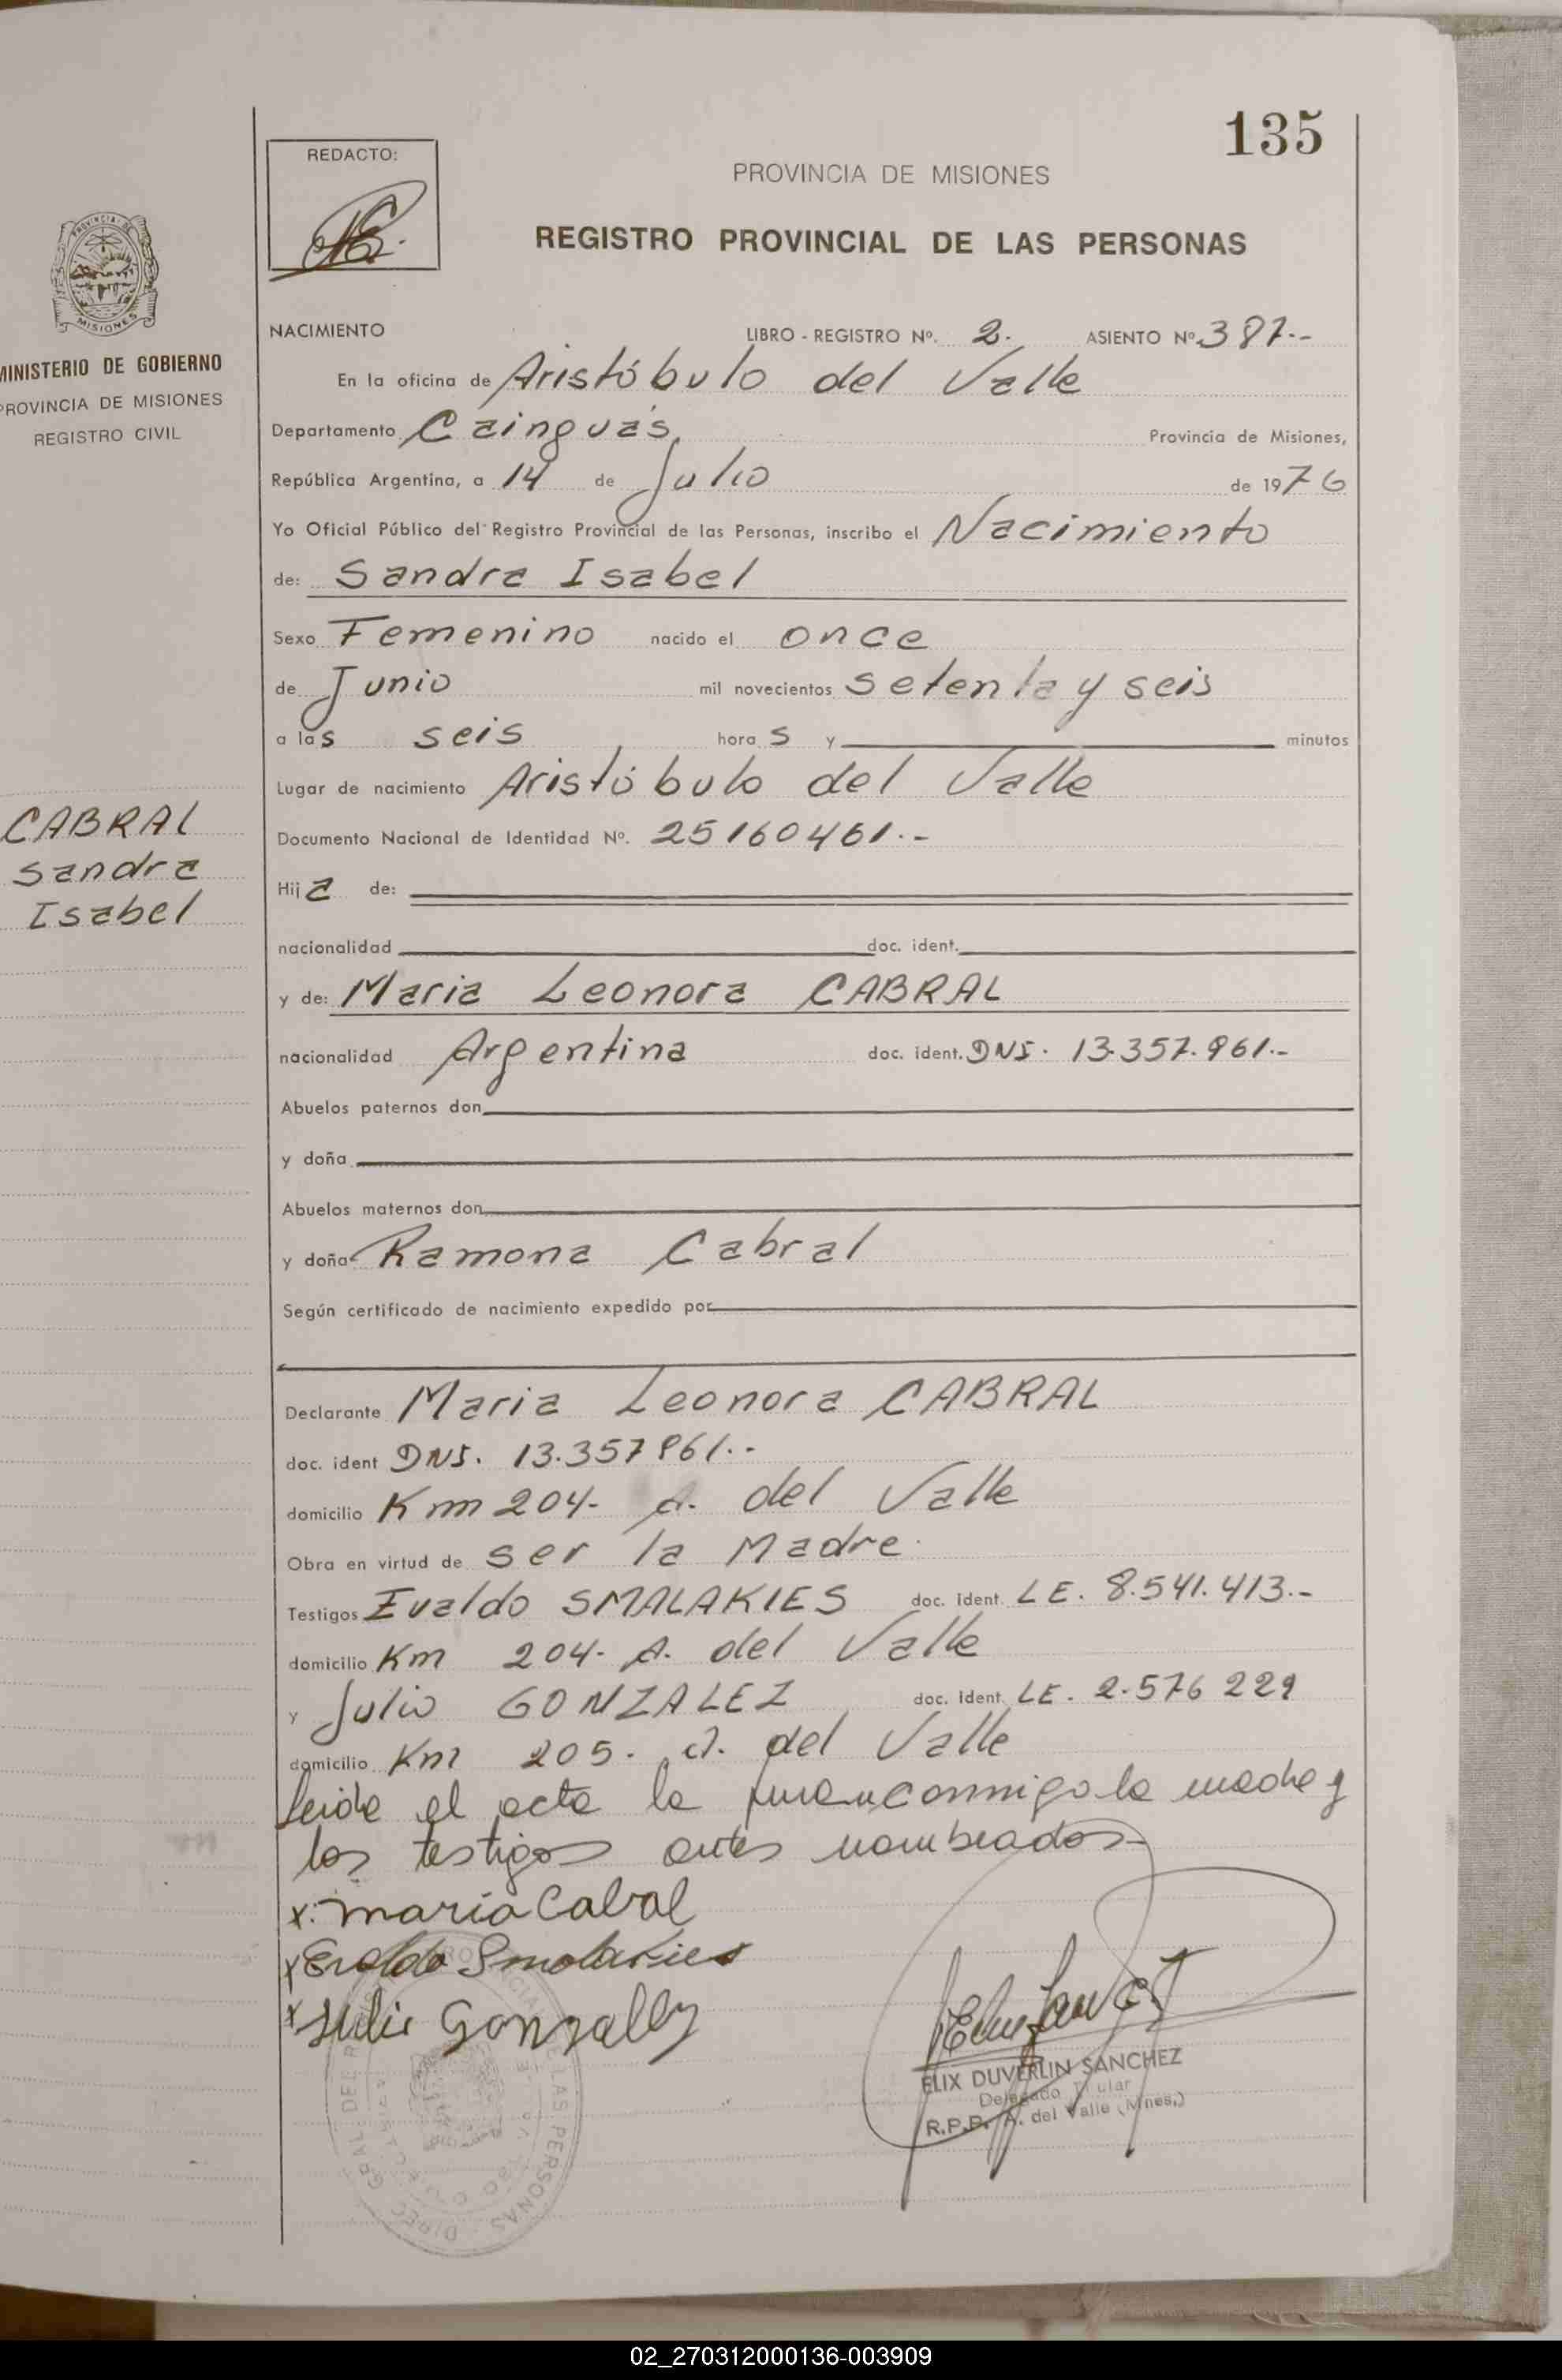 135
REDACTO:
PROVINCIA DE MISIONES
REGISTRO PROVINCIAL DE LAS PERSONAS
MISIONES
MINISTERIO DE GOBIERNO
PROVINCIA DE MISIONES
REGISTRO CIVIL
CABRAL
Sandra
Isabel
NACIMIENTO LIBRO - REGISTRO Nº. 2. ASIENTO Nº 387.-
En la oficina de Aristóbulo del Valle
Departamento Cainguás, Provincia de Misiones,
República Argentina, a 14 de Julio de 1976
Yo Oficial Público del Registro Provincial de las Personas, inscribo el Nacimiento
de: Sandra Isabel
Sexo Femenino nacido el once
de Junio mil novecientos setenta y seis
a las seis horas y minutos
Lugar de nacimiento Aristóbulo del Valle
Documento Nacional de Identidad Nº. 25160461.-
Hija de:
nacionalidad doc. ident.
y de: Maria Leonora CABRAL
nacionalidad Argentina doc. ident. DNI. 13.357.961.-
Abuelos paternos don
y doña
Abuelos maternos don
y doña Ramona Cabral
Según certificado de nacimiento expedido por
Declarante Maria Leonora CABRAL
doc. ident DNI. 13.357 961.-
domicilio Km 204- A. del Valle
Obra en virtud de ser la Madre.
Testigos Evaldo SMALAKIES doc. ident. LE. 8.541.413.-
domicilio Km 204- A. del Valle
y Julio GONZALEZ doc. ident. LE. 2.576 229
domicilio Km 205. A. del Valle
leida el acta la firman conmigo la madre y
los testigos antes nombrados-
x. maria Cabral
x Evaldo Smalakies
x Julio Gonzallez
ELIX DUVERLIN SANCHEZ
Delegado Titular
R.P.P. A. del Valle (Mnes.)
02_270312000136-003909